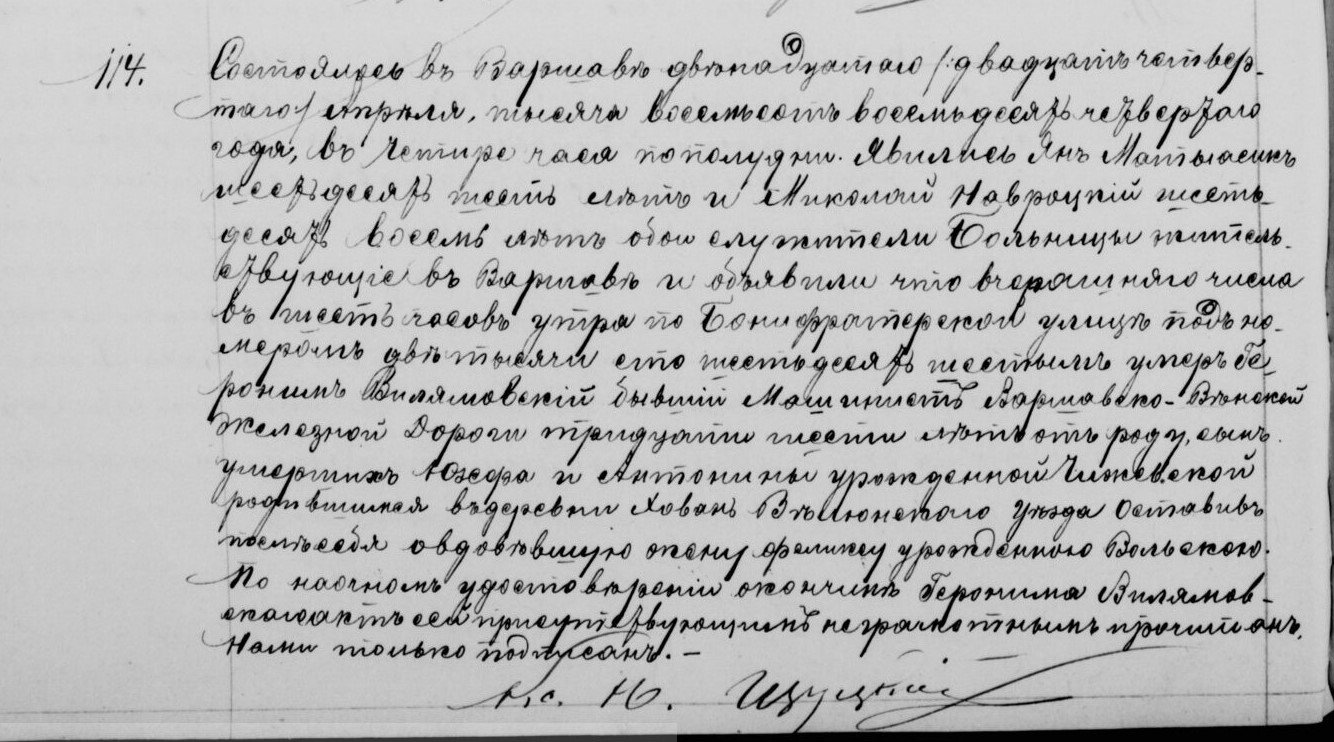 114. Состоялось въ Варшавѣ двѣнадцатаго /:двадцать четвер-
таго/ Апрѣля, тысяча восемьсотъ восемьдесятъ четвертаго
года, въ четире часа пополудни. Явились Янъ Матыасикъ
шестьдесятъ шесть лѣтъ и Миколай Навроцкій шесть-
десятъ восемь лѣтъ обои служители Больницы житель-
ствующіе въ Варшавѣ и объявили что вчерашняго числа
въ шесть часовъ утра по Бонифратерской улицѣ подъ но-
меромъ двѣ тысячи сто шестьдесятъ шестымъ умеръ Ге-
ронимъ Вилямовскій бывшій Машинистъ Варшавско-Вѣнской
Желѣзной Дороги тридцати шести лѣтъ отъ роду, сынъ
умершихъ Юзефа и Антонины урожденной Чижевской
родившійся въ деревни Хованъ Вѣлюнскаго Уѣзда Оставивъ
послѣ себя овдовѣвшую жену Феликсу урожденною Вольскою.
По наочномъ удостовѣреніи окончинѣ Геронима Вилямов-
скаго актъ сей присутствующимъ неграмотнымъ прочитанъ,
Нами только подписанъ. –
Кс. Н.